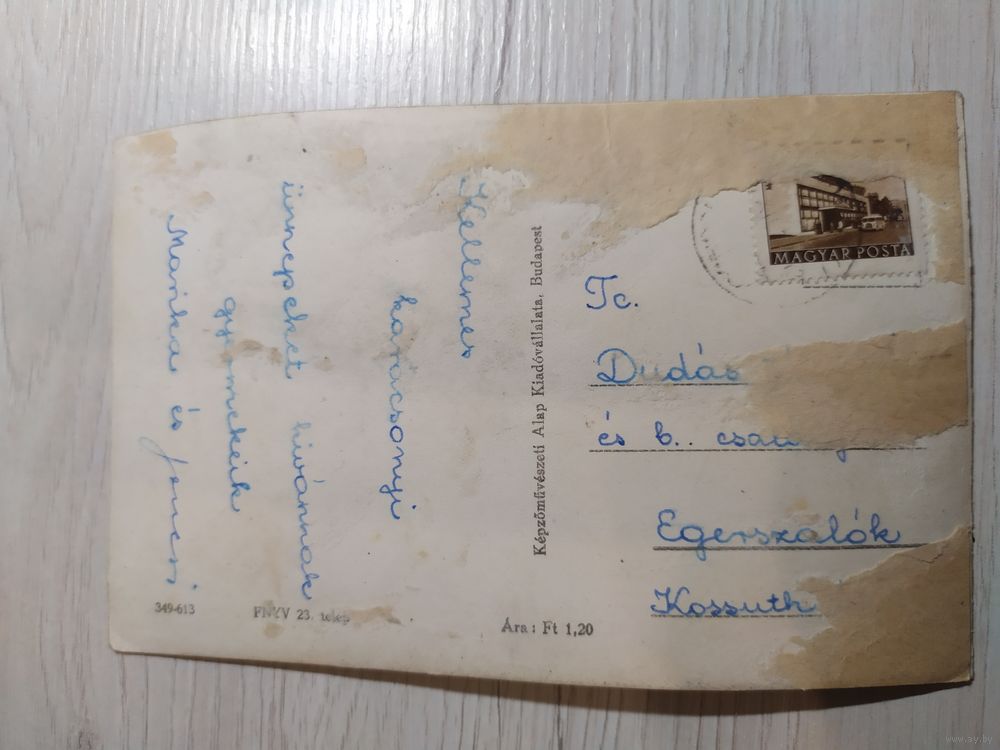 Kellemes
karácsonyi
ünnepeket kivánnak
gyermekeik
Marika és Jencsi
349-613
FNYV 23. telep
Ára: Ft 1,20
Képzőművészeti Alap Kiadóvállalata, Budapest
MAGYAR POSTA
Tc.
Dudás
és b..
Egerszalók
Kossuth
www.ay.by